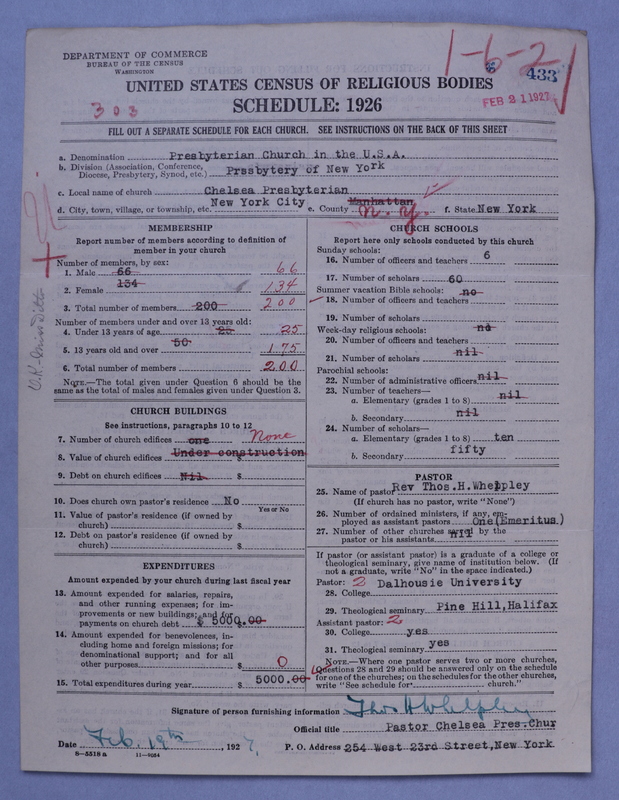 DEPARTMENT OF COMMERCE
BUREAU OF THE CENSUS
WASHINGTON
1-6-2
433
UNITED STATES CENSUS OF RELIGIOUS BODIES
303
SCHEDULE: 1926
FEB 21 1927
FILL OUT A SEPARATE SCHEDULE FOR EACH CHURCH. SEE INSTRUCTIONS ON THE BACK OF THIS SHEET
a. Denomination Presbyterian Church in the U.S.A.
b. Division (Association, Conference, Diocese, Presbytery, Synod, etc.) Presbytery of New York
c. Local name of church Chelsea Presbyterian
d. City, town, village, or township, etc. New York City e. County Manhattan N. Y. f. State New York
MEMBERSHIP
Report number of members according to definition of
member in your church
Number of members, by sex:
1. Male 66 66
2. Female 134 134
3. Total number of members 200 200
Number of members under and over 13 years old:
4. Under 13 years of age 25 25
5. 13 years old and over 50 175
6. Total number of members 200
NOTE.—The total given under Question 6 should be the
same as the total of males and females given under Question 3.
CHURCH BUILDINGS
See instructions, paragraphs 10 to 12
7. Number of church edifices one None
8. Value of church edifices Under construction
9. Debt on church edifices Nil
10. Does church own pastor's residence No
Yes or No
11. Value of pastor's residence (if owned by
church) $
12. Debt on pastor's residence (if owned by
church) $
EXPENDITURES
Amount expended by your church during last fiscal year
13. Amount expended for salaries, repairs,
and other running expenses; for im-
provements or new buildings; and for
payments on church debt $ 5000.00
14. Amount expended for benevolences, in-
cluding home and foreign missions; for
denominational support; and for all
other purposes $ 0
15. Total expenditures during year $ 5000.00
CHURCH SCHOOLS
Report here only schools conducted by this church
Sunday schools:
16. Number of officers and teachers 6
17. Number of scholars 60
Summer vacation Bible schools: no
18. Number of officers and teachers
19. Number of scholars
Week-day religious schools: no
20. Number of officers and teachers
21. Number of scholars nil
Parochial schools:
22. Number of administrative officers nil
23. Number of teachers—
a. Elementary (grades 1 to 8) nil
b. Secondary nil
24. Number of scholars—
a. Elementary (grades 1 to 8) ten
b. Secondary fifty
PASTOR
25. Name of pastor Rev Thos.H.Whelpley
(If church has no pastor, write "None")
26. Number of ordained ministers, if any, em-
ployed as assistant pastors One(Emeritus)
27. Number of other churches served by the
pastor or his assistants nil
If pastor (or assistant pastor) is a graduate of a college or
theological seminary, give name of institution below. (If
not a graduate, write "No" in the space indicated.)
Pastor: 2 Dalhousie University
28. College
29. Theological seminary Pine Hill,Halifax
Assistant pastor: 2
30. College yes
31. Theological seminary yes
NOTE.—Where one pastor serves two or more churches,
Questions 28 and 29 should be answered only on the schedule
for one of the churches; on the schedules for the other churches,
write "See schedule for church."
Signature of person furnishing information Thos H Whelpley
Official title Pastor Chelsea Pres.Chur
Date Feb. 19th, 1927. P. O. Address 254 West 23rd Street,New York
8—5518 a 11—9064